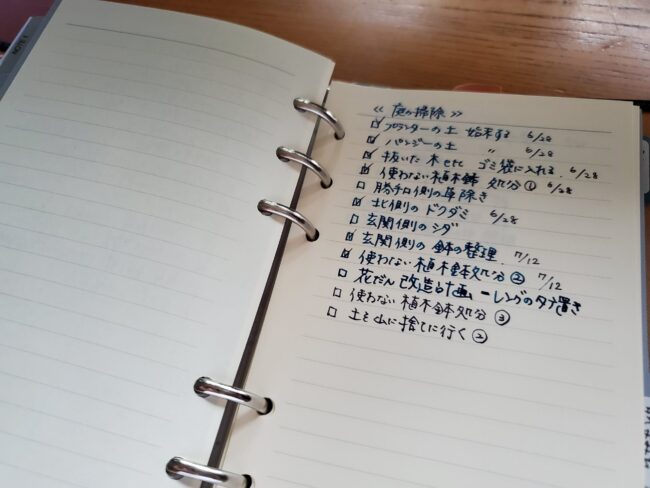 << 庭の掃除 >>
☑ プランターの土 始末する 6/28
☑ パンジーの土 〃 6/28
☑ 抜いた木etc ゴミ袋に入れる. 6/28
☑ 使わない植木鉢 処分① 6/28
□ 勝手口側の草除き
☑ 北側のドクダミ 6/28
□ 玄関側のシダ
☑ 玄関側の鉢の整理. 7/12
☑ 使わない植木鉢処分② 7/12
□ 花だん改造計画ーレンガのタテ置き
□ 使わない植木鉢処分③
□ 土を山に捨てに行く②